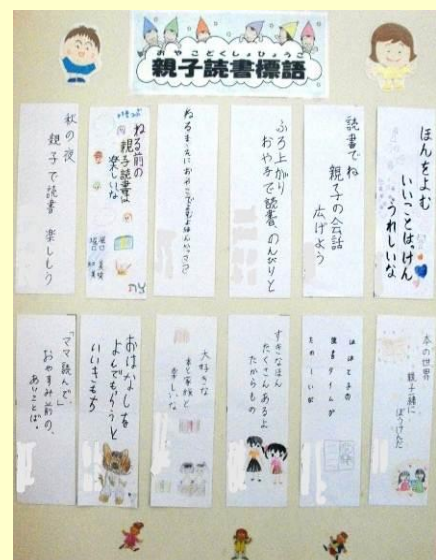 おやこどくしょひょうご
親子読書標語
ほんをよむ
いいことはっけん
うれしいな
読書でね
親子の会話
広げよう
ふろ上がり
おや子で読書、のんびりと
ねるまえに
ねる前の
親子読書は
楽しいな
秋の夜
親子で読書
楽しもう
本の世界
親子一緒に
ぼうけんだ
ははと子の
読書タイムが
たのしいな
すきなほん
たくさんあるよ
たからもの
大好きな
本と家族と
おはなしを
よんでもらうと
いいきもち
「ママ読んで。」
おやすみ前の、
あいことば。